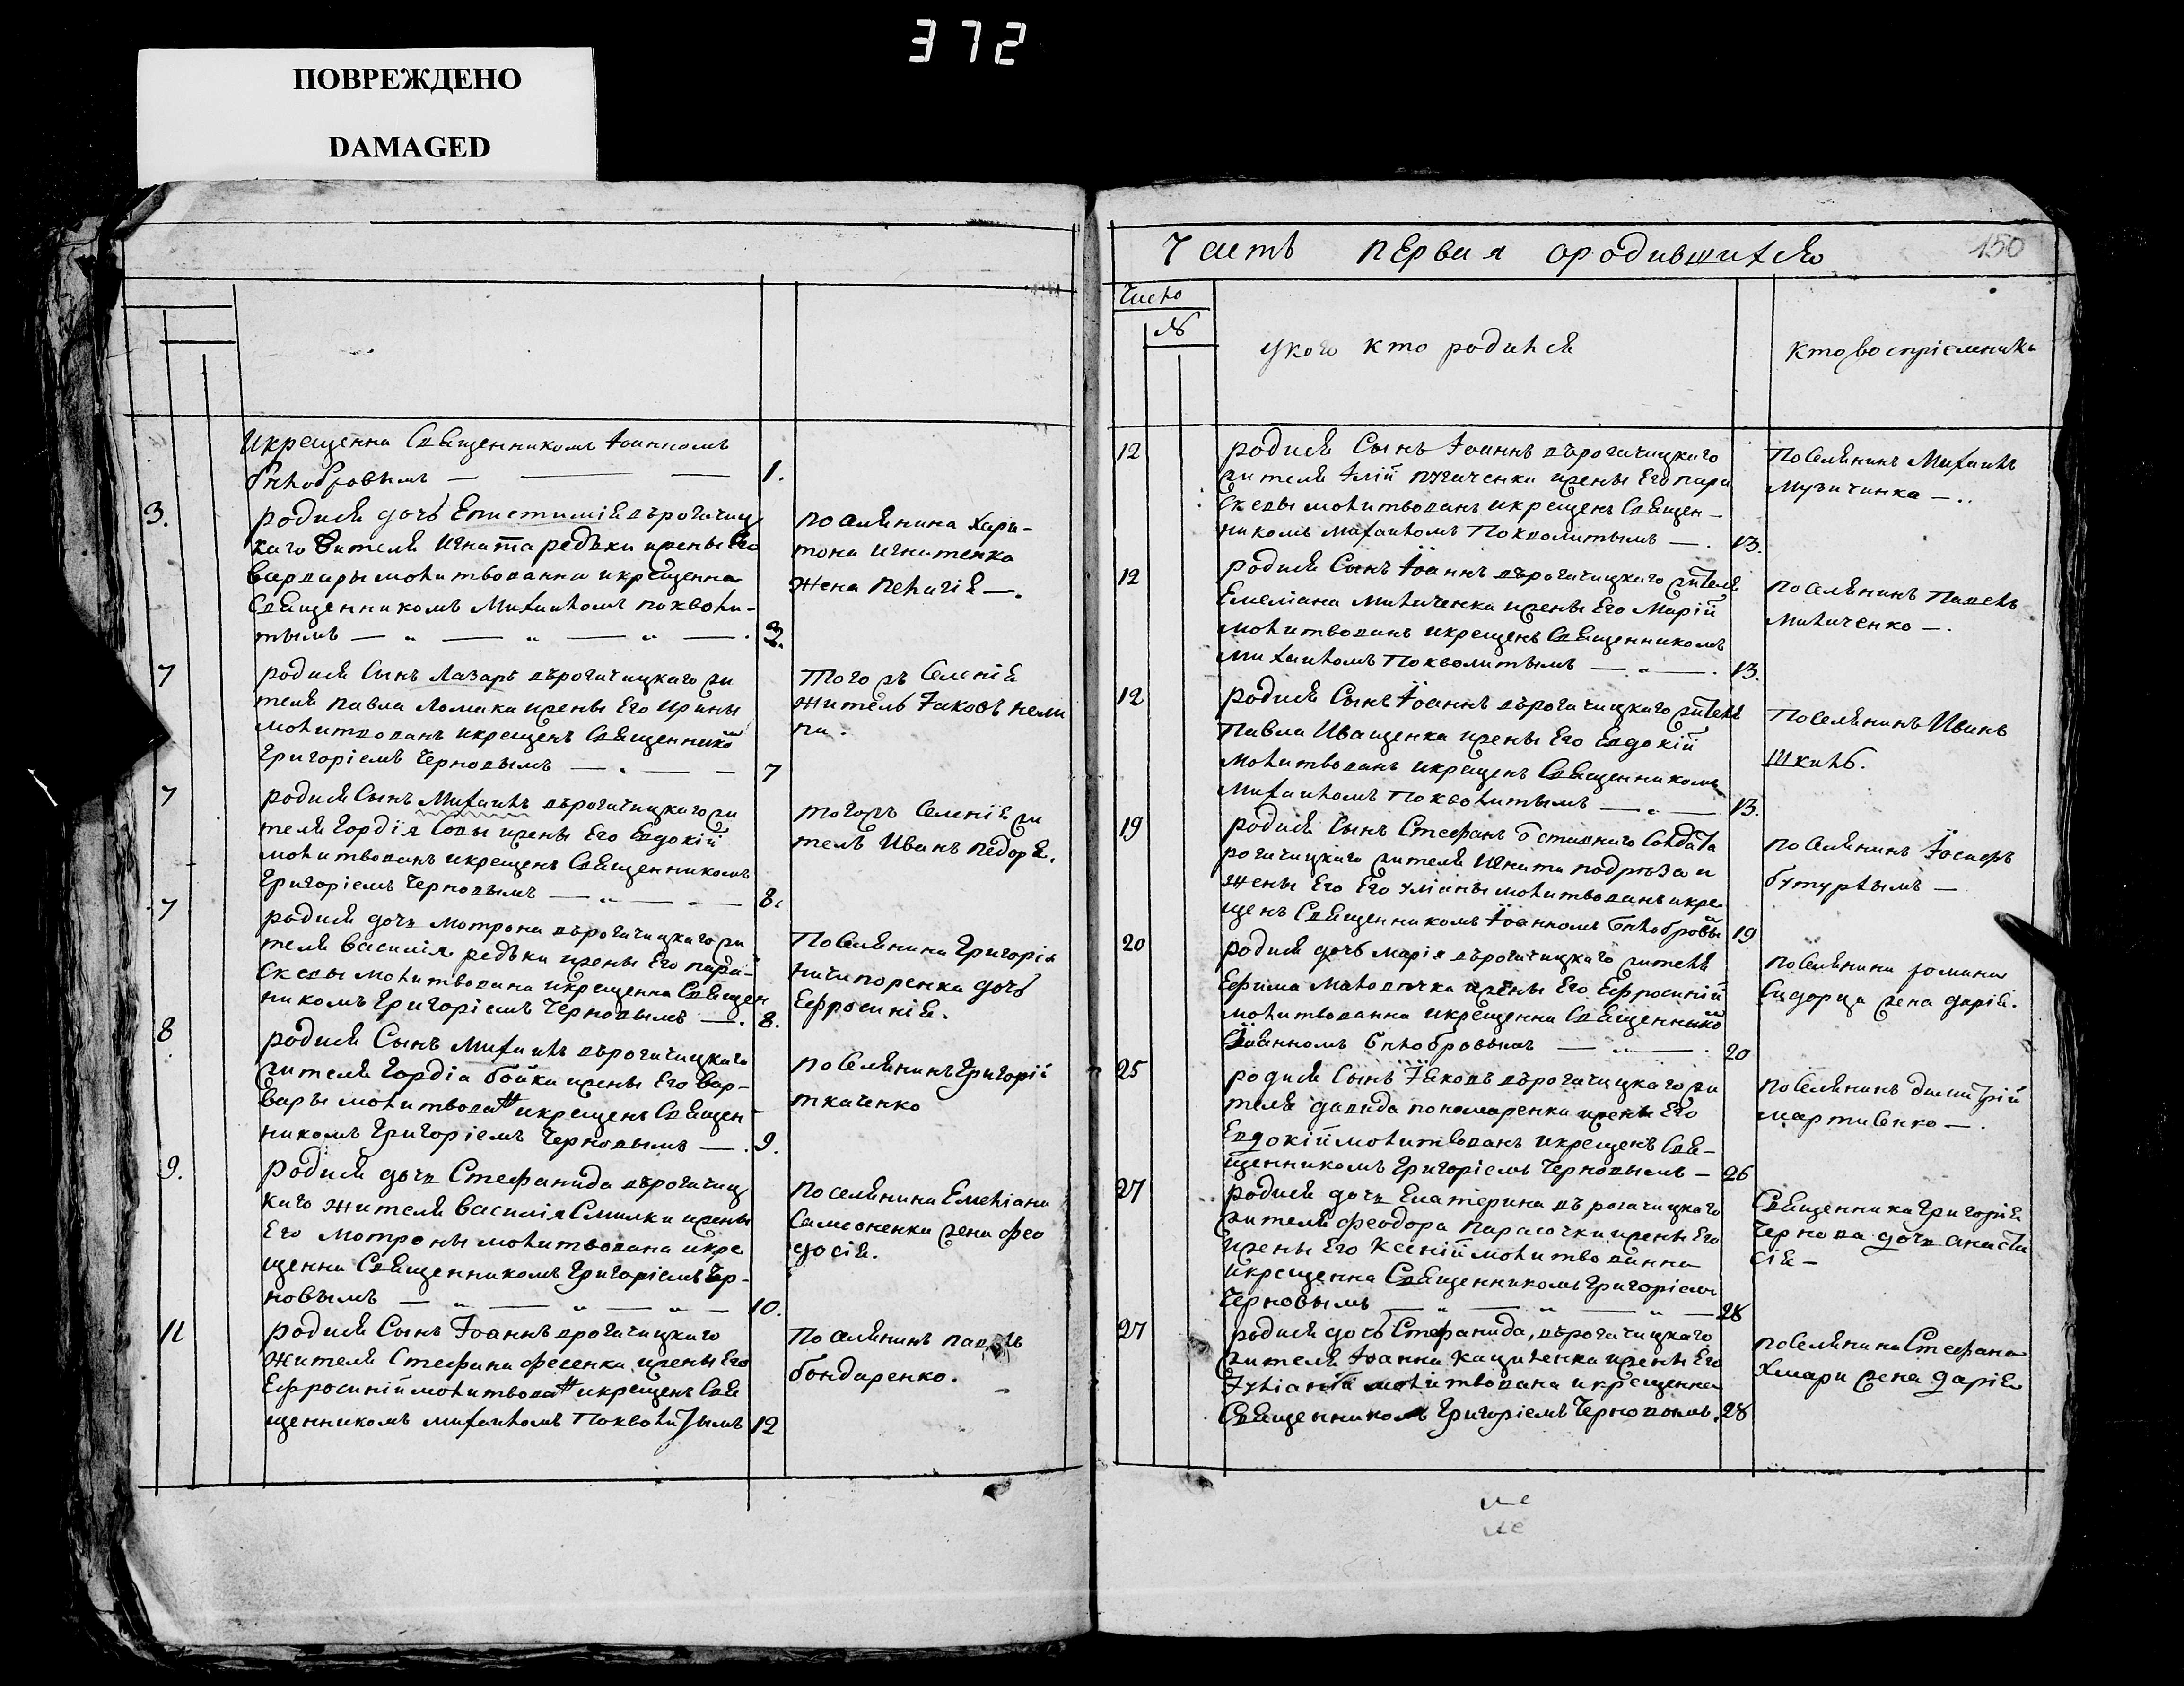 372
ПОВРЕЖДЕНО
DAMAGED
Икрещенна Священникомъ Іоанномъ
Бѣлобровымъ — — — 1.
3.
родися дочь Епистимія вѣрогачиц
каго Жителя Игната редьки ижены Его
Варвары молитвованна икрещенна
Священникомъ Михаиломъ покволи-
тымъ — „ — „ — „ — . 3.
поселянина Хари-
тона Игнатенка
жена Пелагія —.
7
родися Сынъ Лазарь вѣрогачицкаго жи
теля Павла Ломака ижены Его Ирины
молитвованъ икрещенъ Священнико
Григоріемъ Черновымъ — „ — — 7
Тогожъ Селенія
житель Іаковъ
7
родися Сынъ Михаилъ вѣрогачицкаго жи
теля Гордія Совы ижены Его Евдокій
молитвованъ икрещенъ Священникомъ
Григоріемъ Черновымъ — „ — „ — 8.
тогожъ Селенія жи
тель Иванъ Педоря.
7
родися дочь Мотрона вѣрогачицкаго жи
теля Василія редьки ижены Его пара-
скевы молитвована икрещенна Священ
никомъ Григоріемъ Черновымъ — . 8.
Поселянина Григорія
Ничипоренка дочь
Ефросинія.
8
родися Сынъ Михаилъ вѣрогачицкаго
жителя Гордія бойка ижены Его вар-
вары молитвованъ икрещенъ Священ
никомъ Григоріемъ Черновымъ — . 9.
поселянинъ Григорій
ткаченко
9.
родися дочь Стефанида вѣрогачиц
каго жителя Василія Смилки ижены
Его Мотроны молитвована икре
щенна Священникомъ Григоріемъ Чер-
новымъ — „ — „ — „ — 10.
поселянина Емеліана
Самсоненка жена Фео
досія.
11
родися Сынъ Іоаннъ врогачицкаго
жителя Стефана фесенка ижены Его
Ефросиній молитвованъ икрещенъ Свя
щенникомъ Михаиломъ Покволитымъ 12
Поселянинъ Павелъ
бондаренко.
Часть первая ородившихся
150
Число
№
укого кто родился
кто воспріемники
12
родися Сынъ Іоаннъ вѣрогачицкаго
жителя Іліи пугаченка ижены Его пара
скевы молитвованъ икрещенъ Священ-
никомъ Михаиломъ Покволитымъ — . 13.
Поселянинъ Михаилъ
Музичинка — ..
12
родися Сынъ Іоаннъ вѣрогачицкаго жителя
Емеліана Миличенка ижены Его Маріи
молитвованъ икрещенъ Священникомъ
Михаиломъ Покволитымъ — „ — . 13.
поселянинъ Павелъ
Миличенко —.
12
родися Сынъ Іоаннъ вѣрогачицкаго жителя
Павла Иващенка ижены Его Евдокій
молитвованъ икрещенъ Священникомъ
Михаиломъ Покволитымъ — „ — 13.
Поселянинъ Иванъ
Шкиль.
19
родися Сынъ Стефанъ Солдата
рогачицкаго жителя Игната подрѣза и
жены Его Его Уліаны молитвованъ икре
щенъ Священникомъ Іоанномъ Бѣлобровы 19
поселянинъ Іосифъ
бутурлымъ —
20
родися дочь Марія вѣрогачицкаго жителя
Ефима ижены Его Ефросиній
молитвованна икрещенна Священнико
Іоанномъ Бѣлобровымъ — „ — . 20
поселянина романа
Сидорца жена дарія.
25
родися Сынъ Іаковъ вѣрогачицкаго жи
теля давида пономаренка ижены Его
Евдокій молитвованъ икрещенъ Свя-
щенникомъ Григоріемъ Черновымъ — 26
поселянинъ димитрій
мартиенко —.
27
родися дочь Екатерина вѣрогачицкаго
жителя феодора Парасочки ижены Его
ижены Его Ксеніи молитвованна
икрещенна Священникомъ Григоріемъ
Черновымъ — „ — „ — „ — 28
Священника Григорія
Чернова дочь анаста
сія —
27
родися дочь Стефанида, вѣрогачицкаго
жителя Іоанна Кациленка ижены Его
Іуліаніи молитвована икрещенна
Священникомъ Григоріемъ Черновымъ. 28
поселянина Стефана
Хмари жена дарія